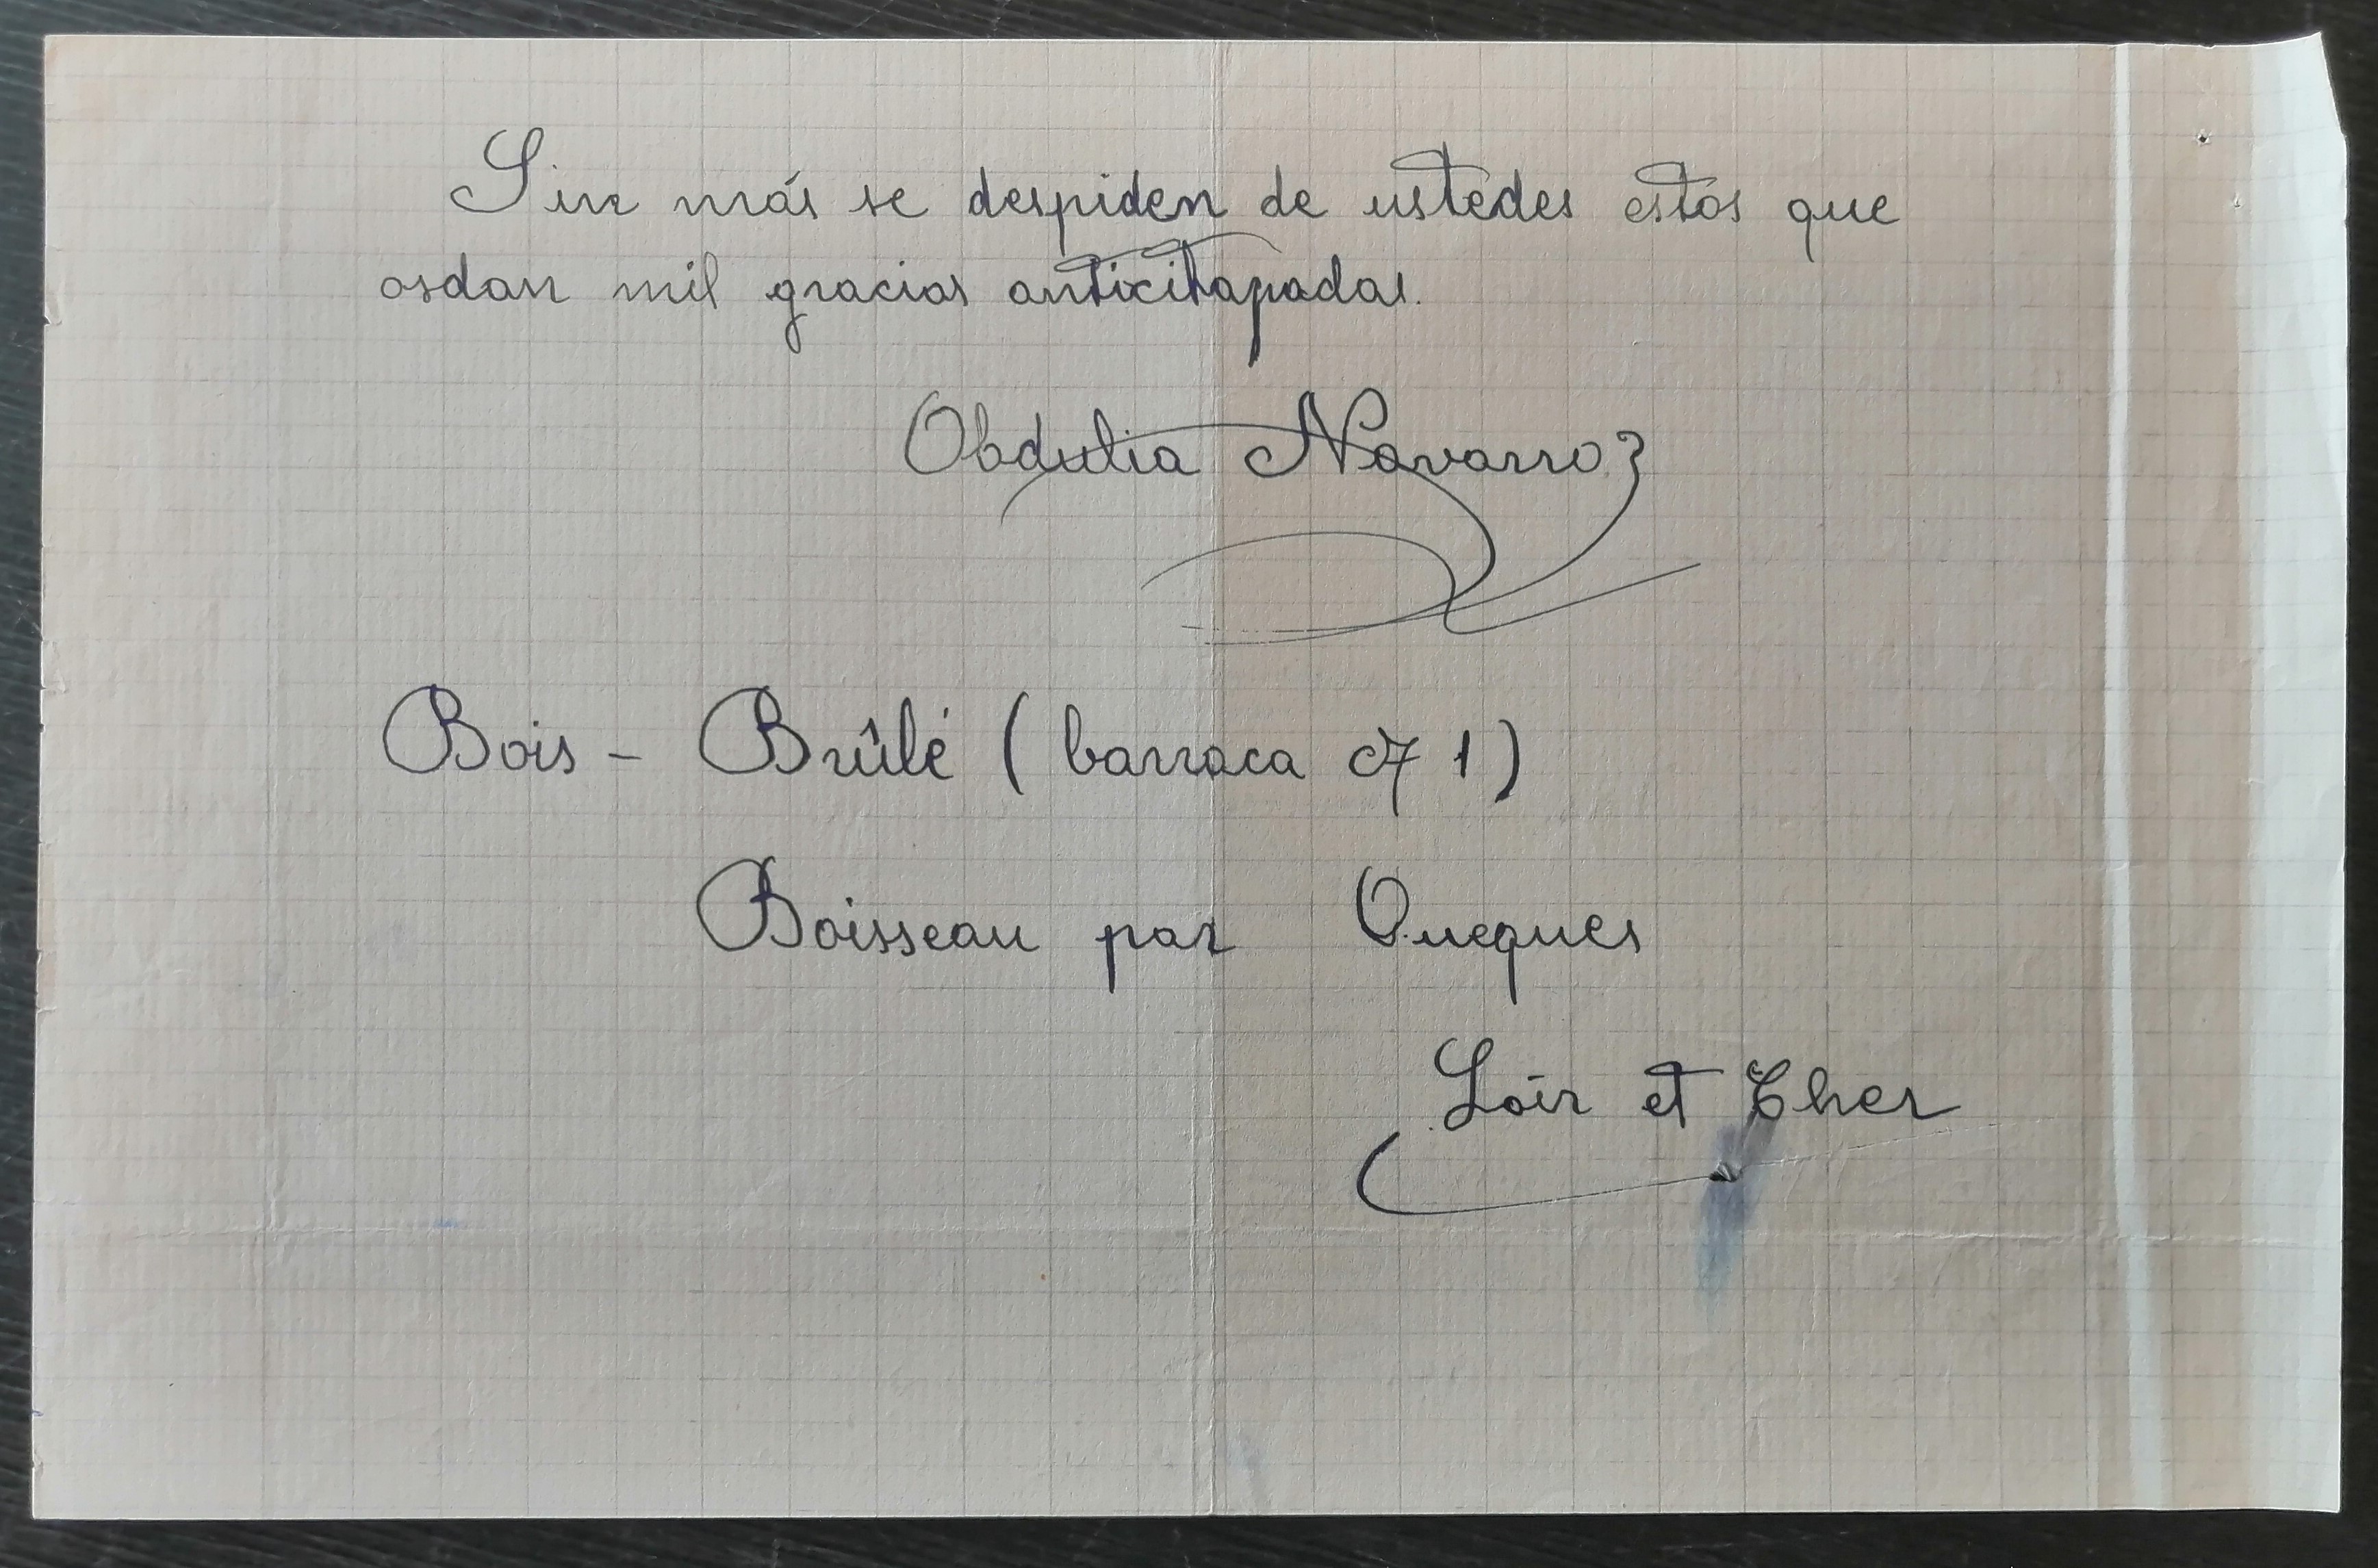 Sin más se despiden de ustedes estos que
osdan mil gracias anticitapadas.
Obdulia Navarro
Bois - Brûlé (barraca nº 1)
Boisseau par Oucques
Loir et Cher